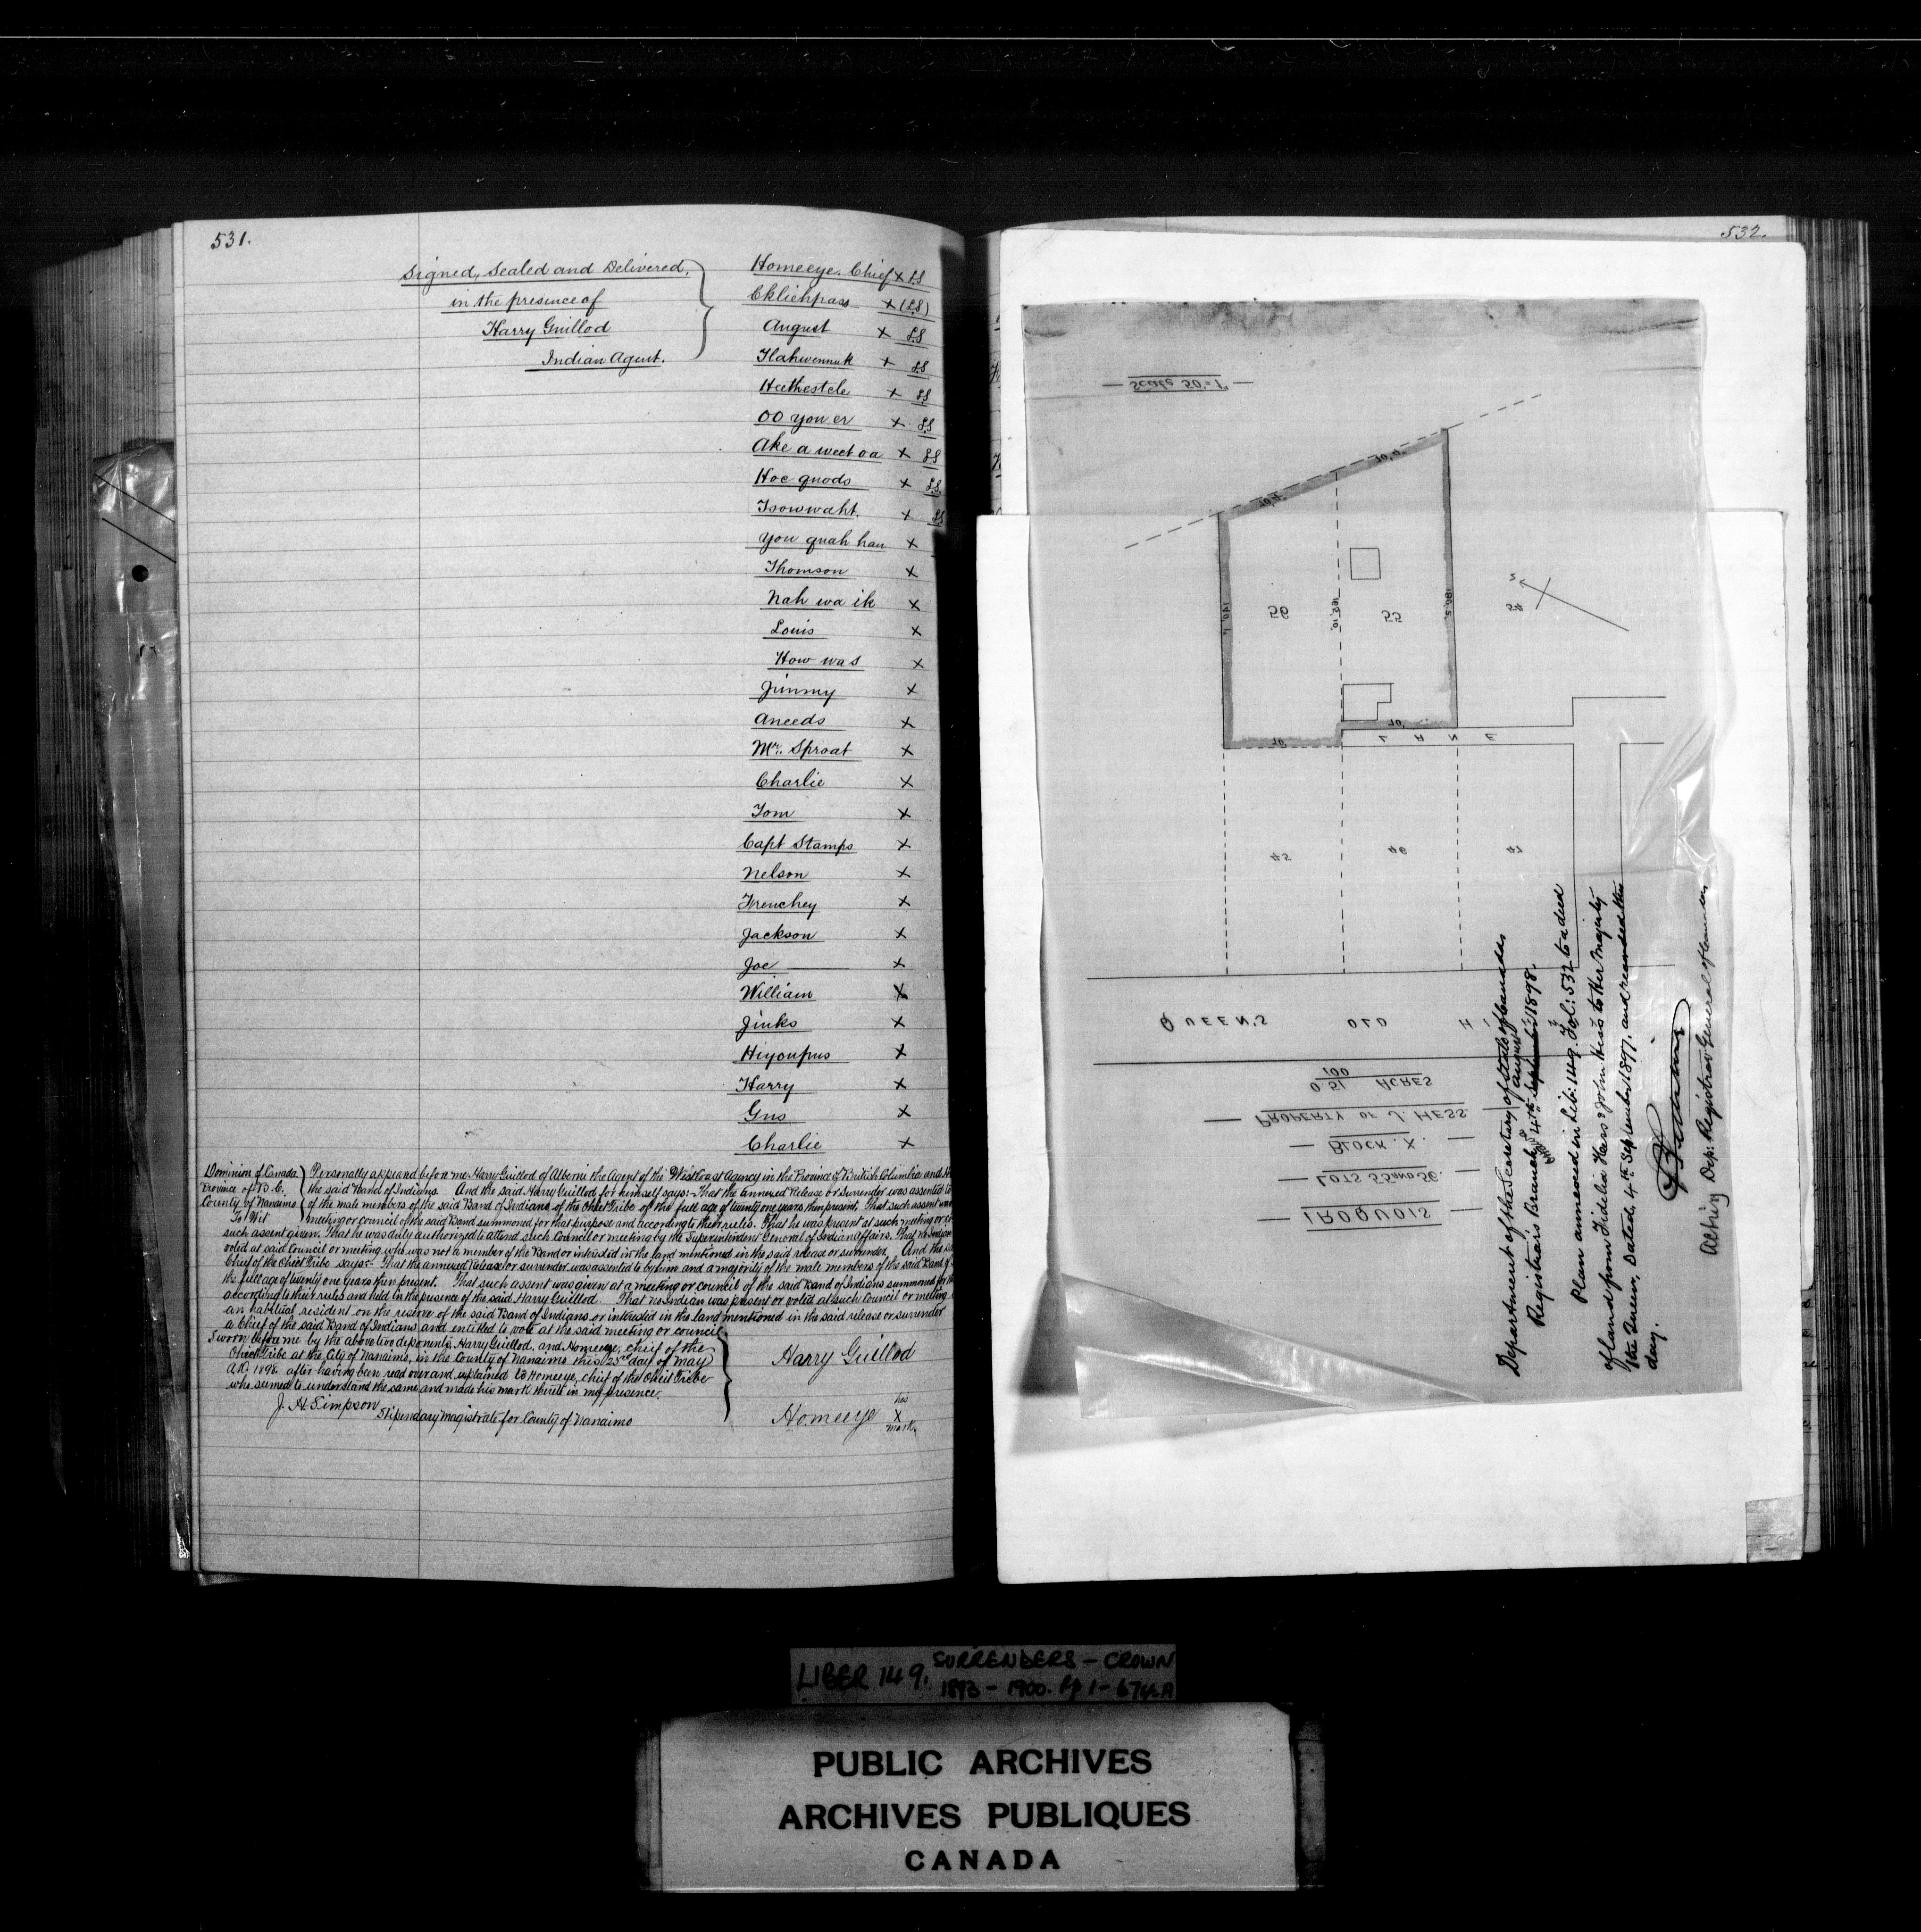 531.
Signed, Sealed and Delivered,
in the presence of
Harry Guillod
Indian Agent.
Homeeye. Chief x LS
Ekliehpass x (LS)
August x LS
Tlahwennuk x LS
Heethestele x LS
OO you er x LS
Ake a weet oa x LS
Hoe quods x LS
Tsowwaht. x LS
You quah hau x
Thomson x
Nah wa ik x
Louis x
How was x
Jimmy x
Aneeds x
Mr. Sproat x
Charlie x
Tom x
Capt Stamps x
Nelson x
Frenchey x
Jackson x
Joe x
William x
Jinks x
Hiyoupus x
Harry x
Gus x
Charlie x
Dominion of Canada
Province of B.C.
County of Nanaimo
To Wit
Personally appeared before me Harry Guillod of Alberni the Agent of the West Coast Agency in the Province of British Columbia and
the said Band of Indians. And the said Harry Guillod for himself says:- That the annexed Release or Surrender was assented to
of the male members of the said Band of Indians of the Oheet Tribe of the full age of twenty one years then present That such assent was
meeting or council of the said Band summoned for that purpose and according to their rules. That he was present at such meeting or
such assent given. That he was duly authorized to attend such Council or meeting by the Superintendent General of Indian Affairs. That no Indian
voted at said Council or meeting who was not a member of the Band or interested in the land mentioned in the said release or surrender. And the
Chief of the Oheet Tribe says:- That the annexed Release or surrender was assented to by him and a majority of the male members of the said Band of
the full age of twenty one years then present. That such assent was given at a meeting or council of the said Band of Indians summoned for
according to their rules and held in the presence of the said Harry Guillod. That no Indian was present or voted at such Council or meeting
an habitual resident on the reserve of the said Band of Indians or interested in the land mentioned in the said release or surrender
a Chief of the said Band of Indians and entitled to vote at the said meeting or council.
Sworn before me by the above two deponents, Harry Guillod, and Homeeye, chief of the
Oheet Tribe at the City of Nanaimo, in the County of Nanaimo this 23rd day of May
A.D. 1898. after having been read over and explained to Homeeye, chief of the Oheet Tribe
who seemed to understand the same and made his mark thereto in my presence.
J. H. Simpson
Stipendiary Magistrate for County of Nanaimo
Harry Guillod
Homeeye his x mark.
532.
Scale 50'=1"
56
55
54
140.1
162.10
186.5
70'
70'
LANE
45
46
47
QUEEN'S OLD H
0.51/100 ACRES
PROPERTY OF J. HESS
BLOCK. X.
LOTS 55 AND 56.
IROQUOIS
Department of the Secretary of State of Canada
Registrar's Branch, 4th August 1898.
Plan annexed in Lib: 149. Fol: 532 to a deed
of land from Fidelia Hess & John Hess to Her Majesty
the Queen, Dated, 4th September 1897. and recorded this
day.
Acting Dep: Registrar General of Canada
LIBER 149. SURRENDERS – CROWN
1893 – 1900. Pp 1 – 674-A
PUBLIC ARCHIVES
ARCHIVES PUBLIQUES
CANADA